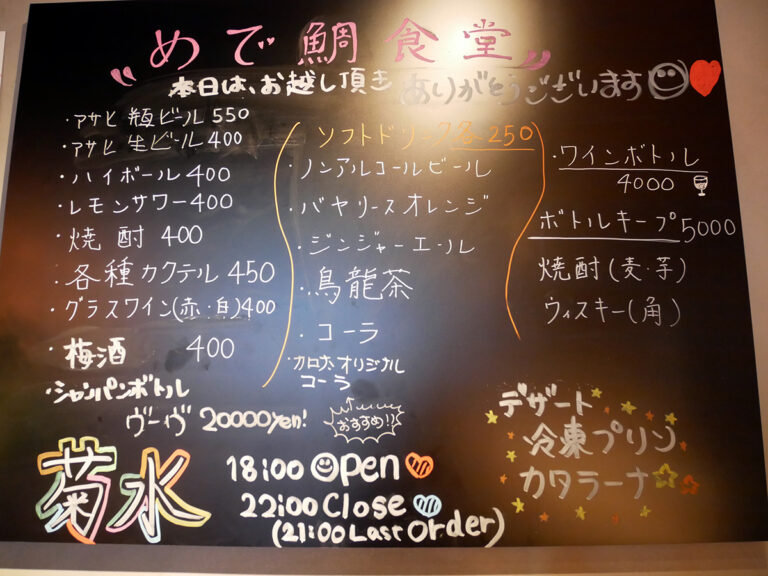 〃めで鯛食堂〃
本日は、お越し頂き ありがとうございます
・アサヒ 瓶ビール 550
・アサヒ 生ビール 400
・ハイボール 400
・レモンサワー 400
・焼酎 400
・各種カクテル 450
・グラスワイン(赤・白)400
・梅酒 400
・シャンパンボトル
ヴーヴ 20000yen!
ソフトドリンク各250
・ノンアルコールビール
・バヤリースオレンジ
・ジンジャーエール
・烏龍茶
・コーラ
・カロ太オリジナル
コーラ
おすすめ!?
・ワインボトル
4000
ボトルキープ5000
焼酎(麦・芋)
ウィスキー(角)
デザート
冷凍プリン
カタラーナ
菊水
18:00 Open
22:00 Close
(21:00 Last Order)